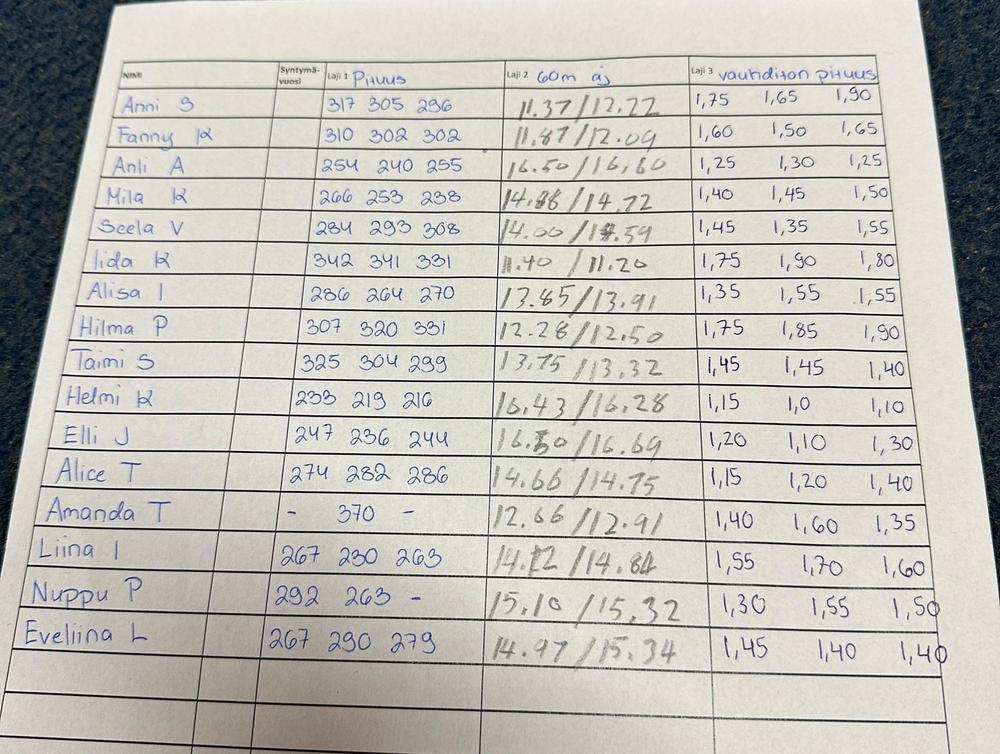 NIMI Syntymä-vuosi Laji 1 Pituus Laji 2 60m aj Laji 3 vauhditon pituus
Anni S 317 305 296 11.37/12.22 1,75 1,65 1,90
Fanny K 310 302 302 11.87/12.09 1,60 1,50 1,65
Anli A 254 240 255 16.50/16,60 1,25 1,30 1,25
Mila K 266 253 238 14.88/14.72 1,40 1,45 1,50
Seela V 284 293 308 14.00 1,45 1,35 1,55
Iida K 342 341 331 11.40/11.20 1,75 1,90 1,80
Alisa I 286 264 270 13.85/13.91 1,35 1,55 1,55
Hilma P 307 320 331 12.28/12.50 1,75 1,85 1,90
Taimi S 325 304 299 13.75/13.32 1,45 1,45 1,40
Helmi K 233 219 216 16.43/16.28 1,15 1,0 1,10
Elli J 247 236 244 16.50/16.69 1,20 1,10 1,30
Alice T 274 282 286 14.66/14.75 1,15 1,20 1,40
Amanda T - 370 - 12.66/12.91 1,40 1,60 1,35
Liina I 267 230 263 14.12/14.84 1,55 1,70 1,60
Nuppu P 292 263 - 15.10/15.32 1,30 1,55 1,50
Eveliina L 267 290 279 14.97/15.34 1,45 1,40 1,40